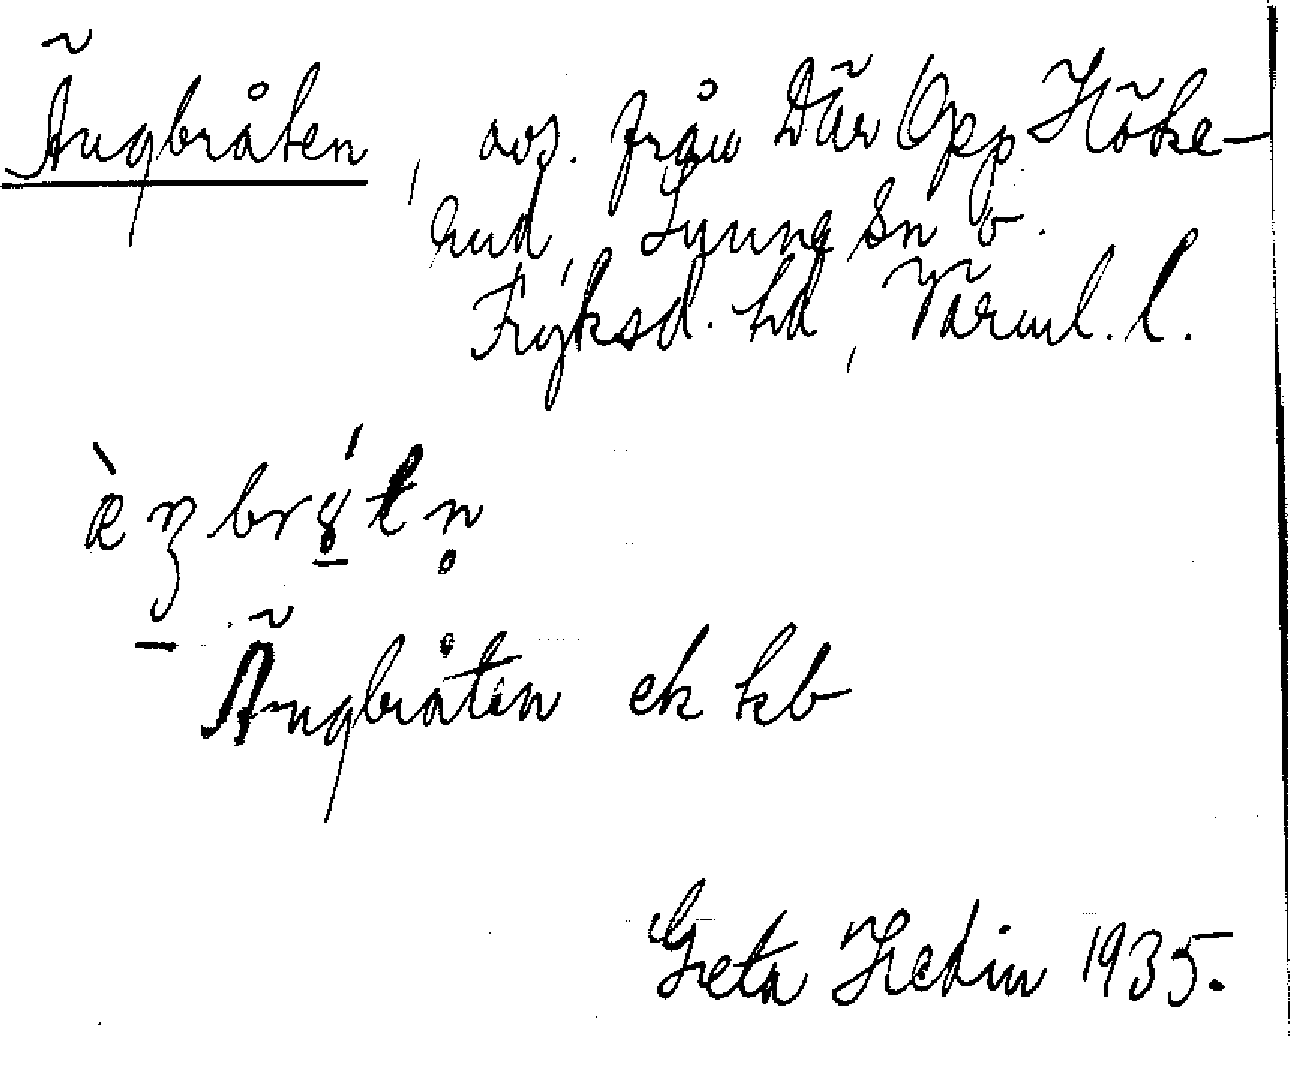 Ängbråten, avs. från Där Opp Höke-
rud, Lysvik sn o.
Fryksd. hd, Värml. l.
Ängbråten ek kb
Greta Hedin 1935.